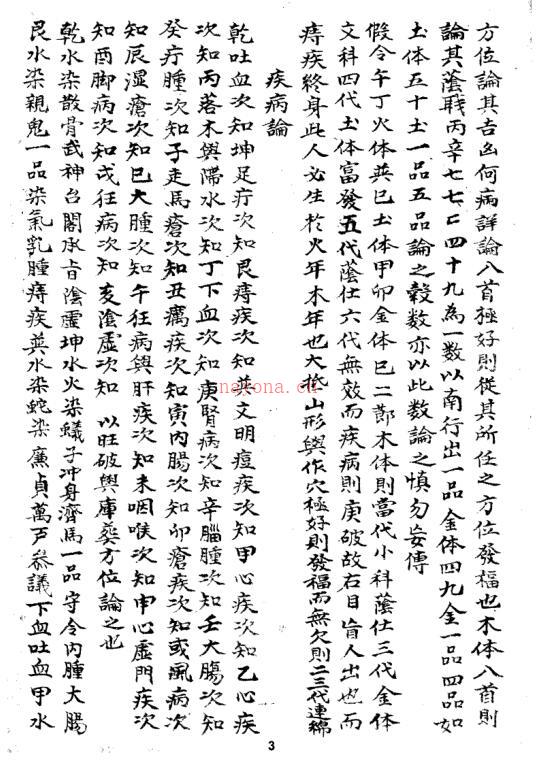 方位論其吉凶何病詳論八首極好則從其所任之方位發福也木体八首則
論其蔭戰丙辛七七二四十九為一数以南行出一品金体四九金一品四品如
土体五十土一品五品論之毂数亦以此数論之慎勿妄傳
假令午丁火体巽巳土体甲卯金体巳二郡木体則當代小科蔭仕三代金体
文科四代土体富發五代蔭仕六代無效而疾病則庚破故右目盲人出也而
痔疾終身此人必生於火年木年也大抵山形與作穴極好則發福而無欠則二三代連綿
疾病論
乾吐血次知坤足疔次知艮痔疾次知巽文明痘疾次知甲心疾次知乙心疾
次知丙落木與滯水次知丁下血次知庚腎病次知辛腦腫次知壬大腸次知
癸疔腫次知子走馬瘡次知丑癘疾次知寅内腸次知卯瘡疾次知或風病次
知辰湿瘡次知巳大腫次知午狂病與肝疾次知未咽喉次知申心虛門疾次
知酉脚病次知戌狂病次知亥陰虛次知 以旺破與庫葬方位論之也
乾水染散骨武神台閣承旨陰虛坤水火染蟻子冲身濟馬一品守令内腫大腸
艮水染親鬼一品染氣乳腫痔疾巽水染蛇染廉貞萬戸参議下血吐血甲水
nayona.cn
3